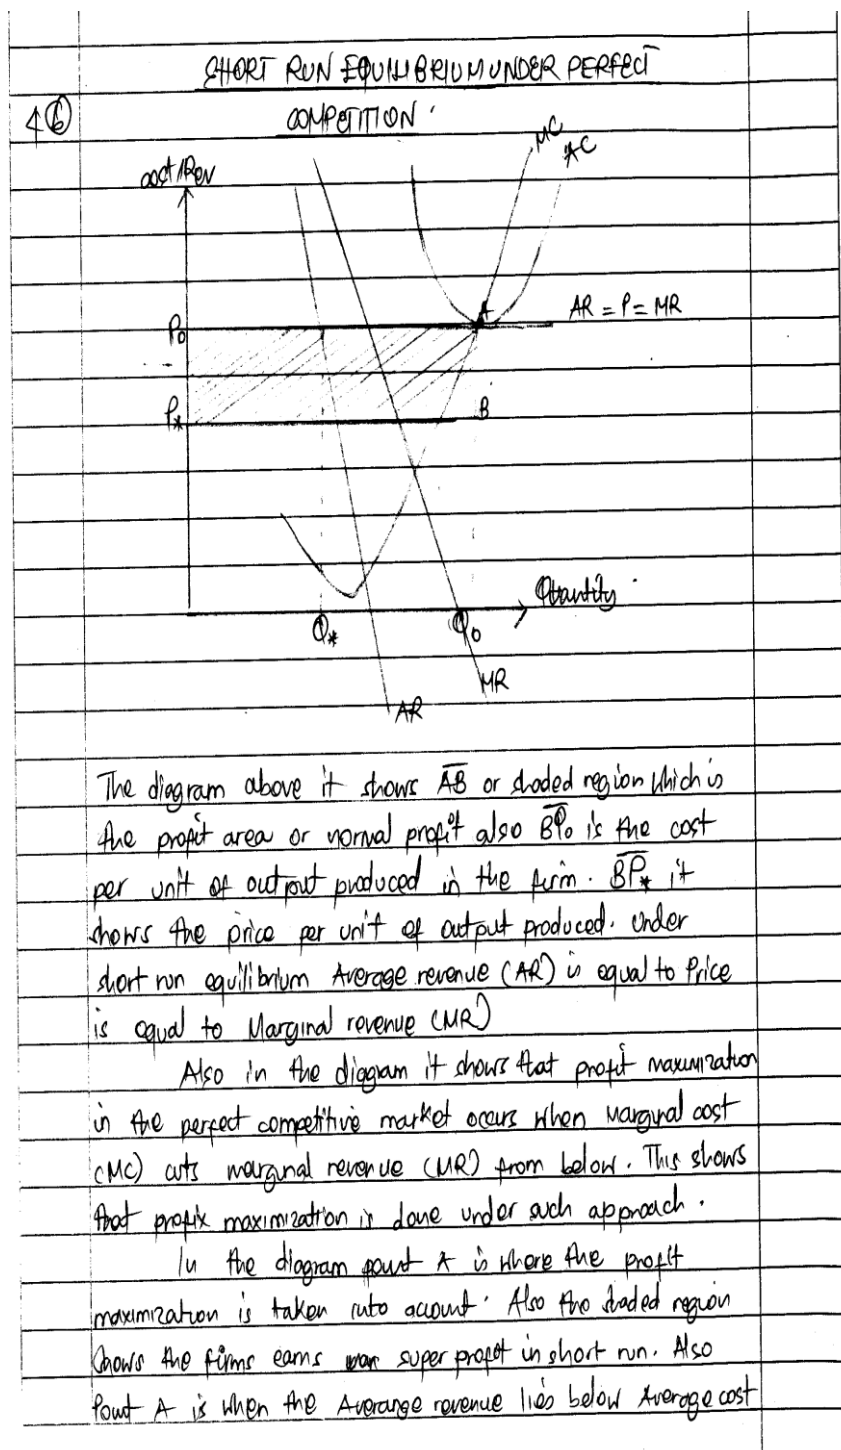 SHORT RUN EQUILIBRIUM UNDER PERFECT
COMPETITION.
MC
AC
cost/Rev
A
AR = P = MR
P0
P*
B
Quantity.
Q*
Q0
MR
AR
The diagram above it shows AB or shaded region which is
the profit area or normal profit also BP0 is the cost
per unit of output produced in the firm. BP* it
shows the price per unit of output produced. Under
short run equilibrium Average revenue (AR) is equal to Price
is equal to Marginal revenue (MR)
Also in the diagram it shows that profit maximization
in the perfect competitive market occurs when Marginal cost
(MC) cuts marginal revenue (MR) from below. This shows
that profix maximization is done under such approach.
In the diagram point A is where the profit
maximization is taken into account. Also the shaded region
shows the firms earns super profit in short run. Also
Point A is when the Average revenue lies below Average cost